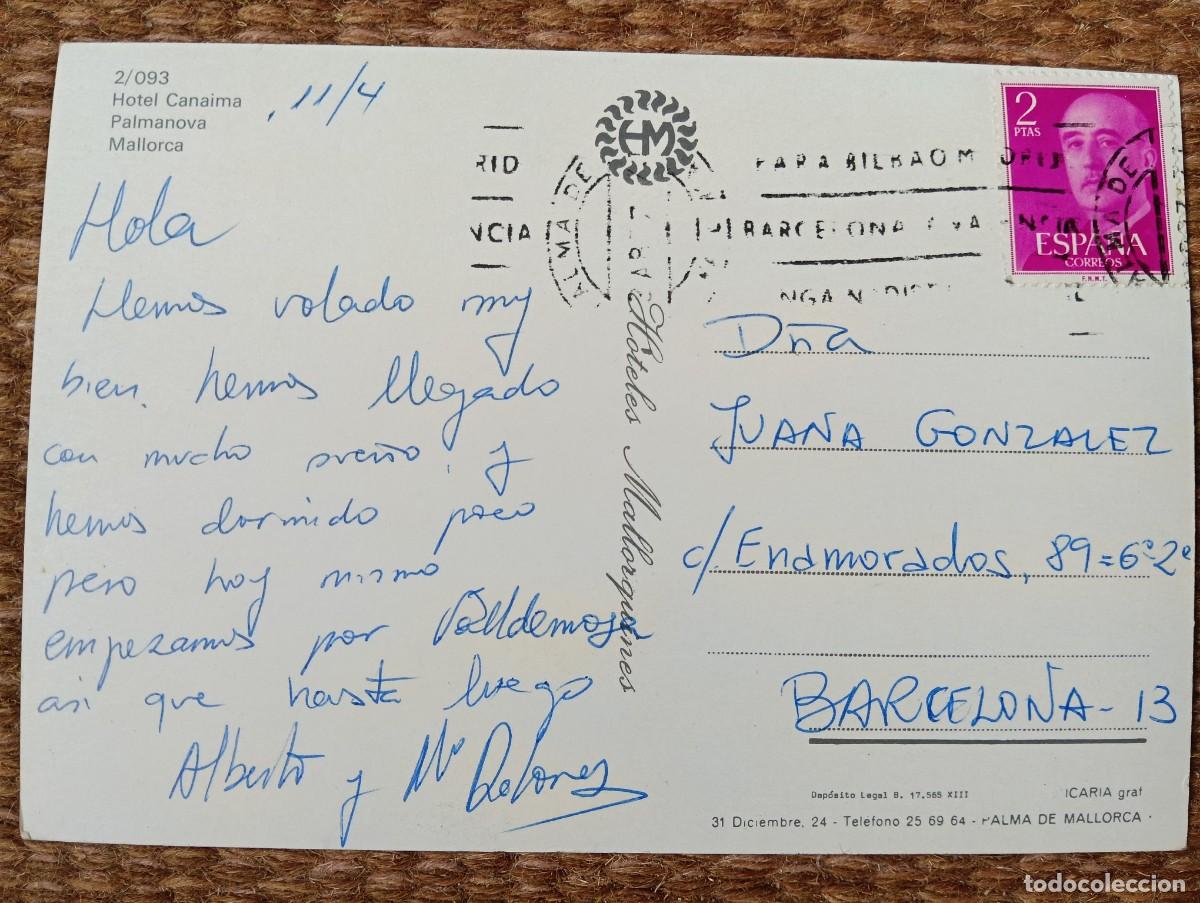 2/093
Hotel Canaima
Palmanova
Mallorca
11/4
Hola
Hemos volado muy
bien, hemos llegado
con mucho sueño, y
hemos dormido poco
pero hoy mismo
empezamos por Valldemosa
asi que hasta luego
Alberto y Mª Dolores
HM
Hoteles Mallorquines
RID
NCIA
ALMA DE
PARA BILBAO M DRID
BARCELONA VA NCIA
2
PTAS
ESPAÑA
CORREOS
F.N.M.T.
MA DE
Dña
JUANA GONZALEZ
c/ Enamorados, 89=6º-2ª
BARCELONA - 13
Depósito Legal B. 17.565 XIII
ICARIA graf
31 Diciembre, 24 - Telefono 25 69 64 - PALMA DE MALLORCA
todocoleccion